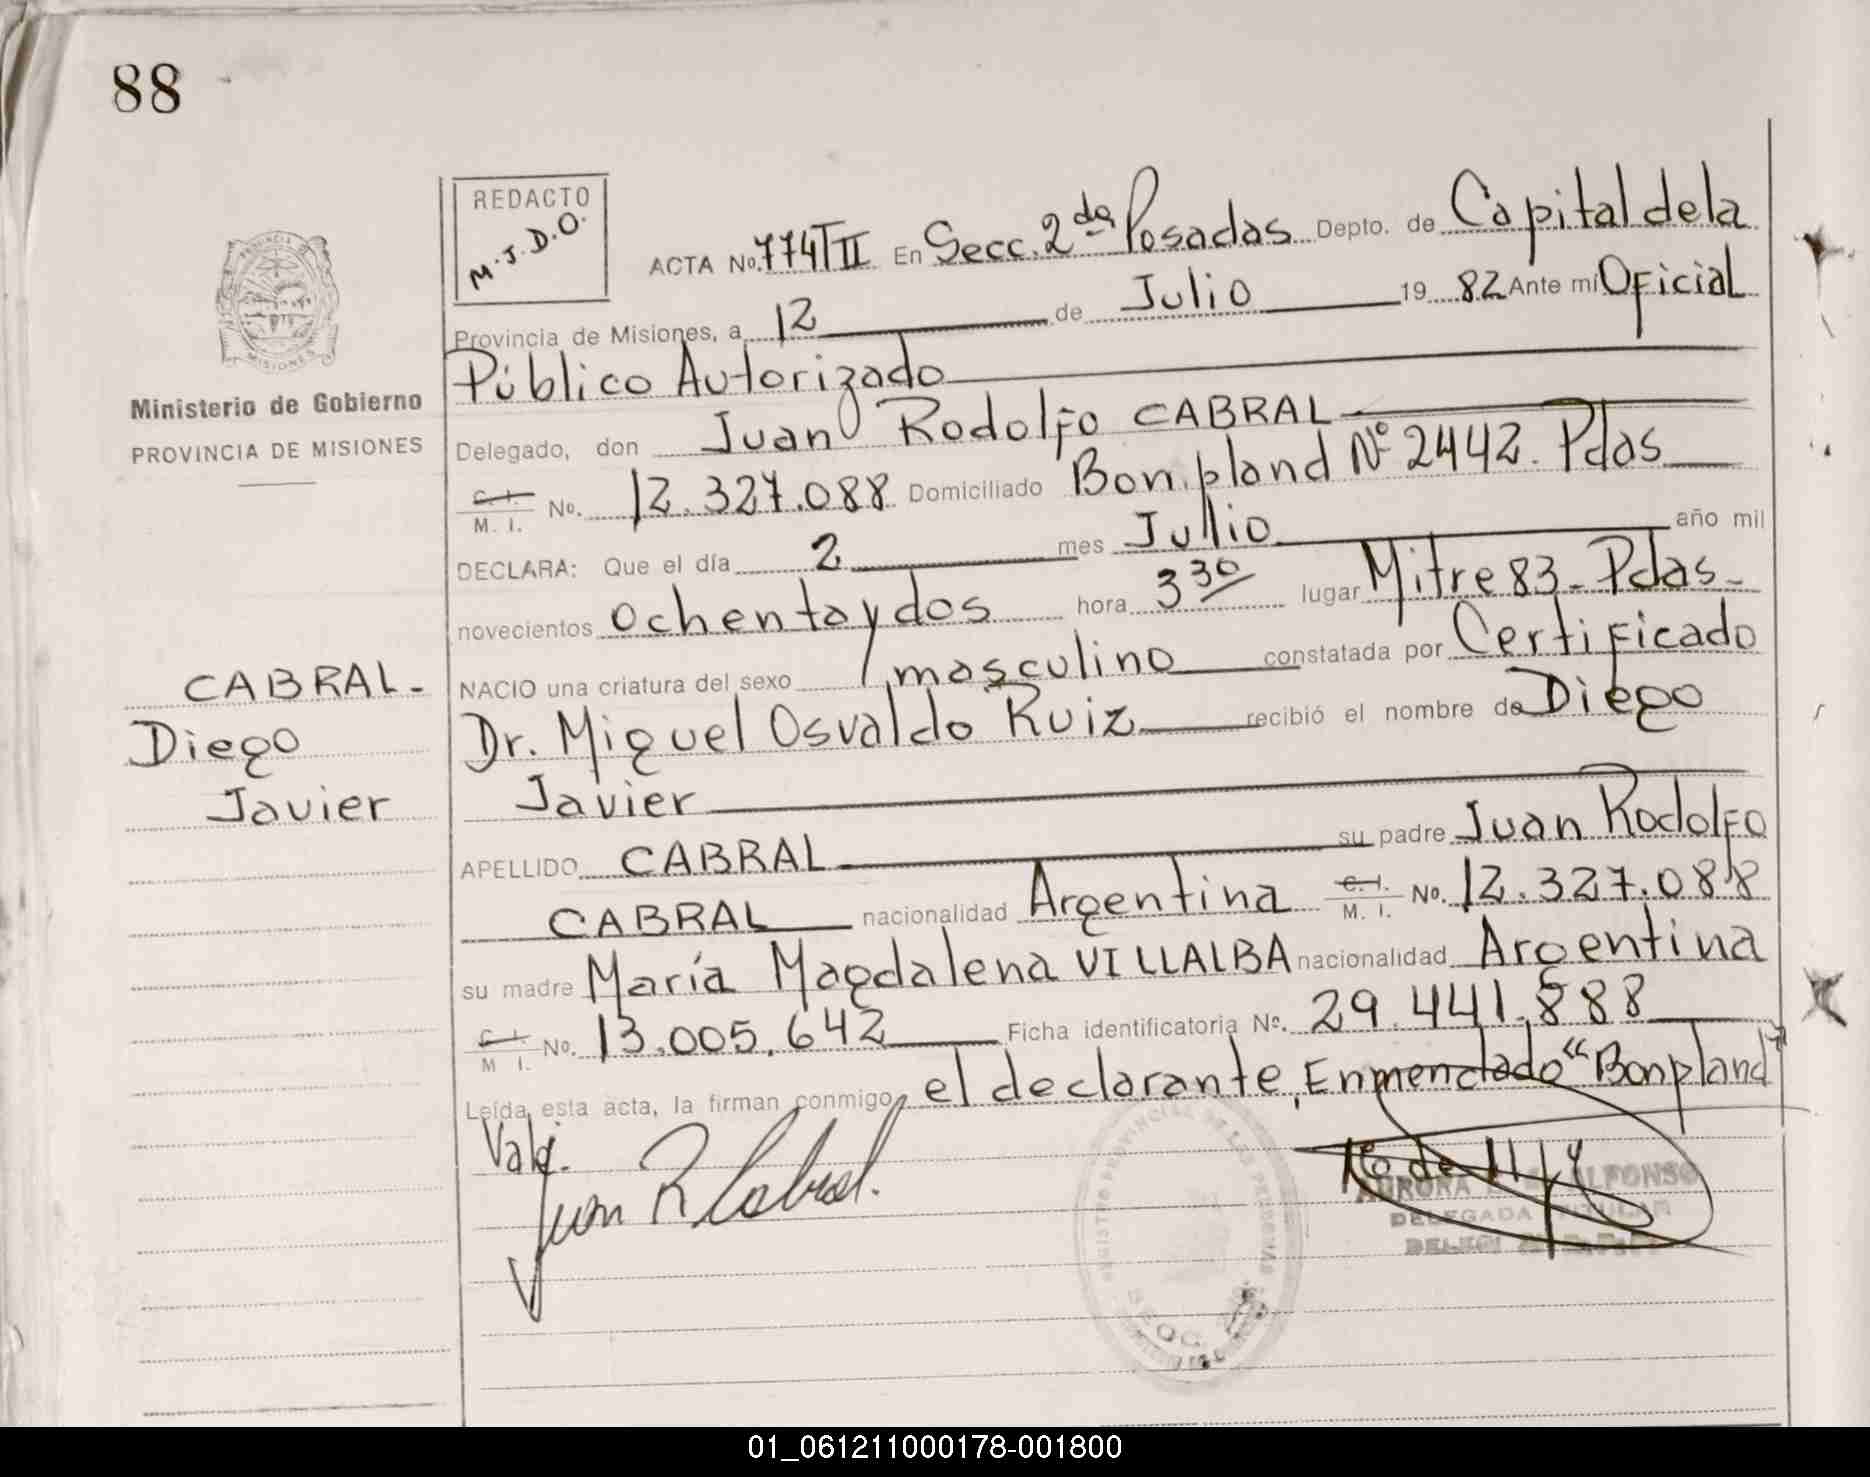 88
REDACTO
M.J.D.O.
ACTA No. 774TII En Secc. 2da Posadas Depto. de Capital de la
Provincia de Misiones, a 12 de Julio 19 82 Ante mi Oficial
Público Autorizado
Delegado, don Juan Rodolfo CABRAL
C. I. M. I. No. 12.327.088 Domiciliado Bonpland Nº 2442. Pdas
DECLARA: Que el día 2 mes Julio año mil
novecientos ochenta y dos hora 3 30 lugar Mitre 83 - Pdas -
NACIO una criatura del sexo masculino constatada por Certificado
Dr. Miguel Osvaldo Ruiz recibió el nombre de Diego
Javier
APELLIDO CABRAL su padre Juan Rodolfo
CABRAL nacionalidad Argentina C. I. M. I. No. 12.327.088
su madre María Magdalena VILLALBA nacionalidad Argentina
C. I. M I. No. 13.005.642 Ficha identificatoria Nº. 29.441.888
Leída esta acta, la firman conmigo, el declarante, Enmendado "Bonpland"
Vale.
Juan R Cabral.
ALFONSO
DELEGADA TITULAR
PROVINCIA DE MISIONES
Ministerio de Gobierno
PROVINCIA DE MISIONES
CABRAL -
Diego
Javier
01_061211000178-001800